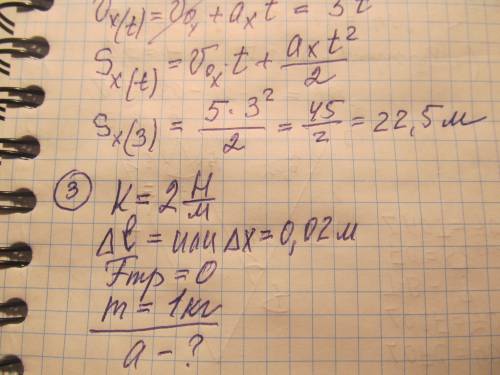 V_x(t) = V_0x + a_x t = 5t
S_x(t) = V_0x · t + a_x t²/2
S_x(3) = 5·3²/2 = 45/2 = 22,5 м
③
K = 2 Н/м
Δℓ = или Δx = 0,02 м
Fтр = 0
m = 1 кг
a - ?